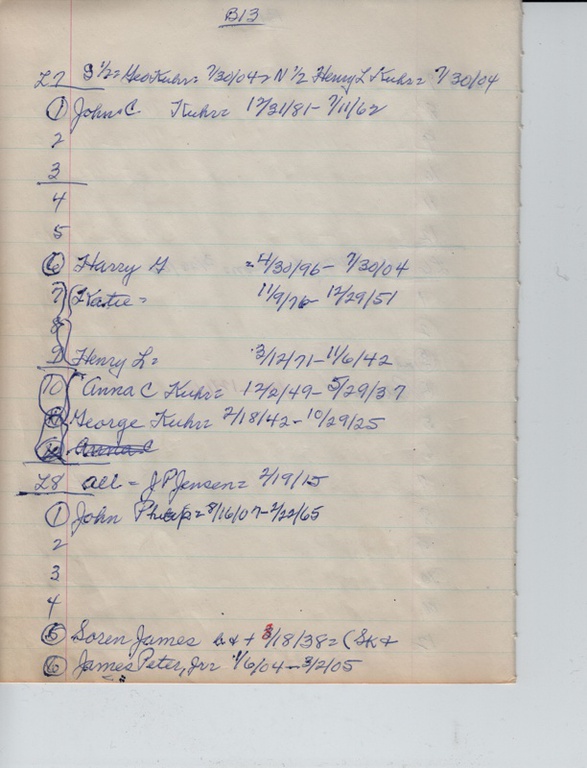 B13
L7 S 1/2 = Geo Kuhr = 7/30/04 > N 1/2 Henry L Kuhr = 7/30/04
1 John C Kuhr = 12/31/81 - 7/11/62
2
3
4
5
6 Harry G = 4/30/96 - 7/30/04
7 Katie = 11/9/76 - 12/29/51
8
9 Henry L = 3/12/71 - 11/6/42
10 Anna C Kuhr = 12/2/49 - 5/29/37
George Kuhr = 2/18/42 - 10/29/25
Anna C
L8 all = J P Jensen = 2/19/15
1 John Philip = 8/16/07 - 2/22/65
2
3
4
5 Soren James b & + 8/18/38 = (SK +
6 James Peter, Jr = 1/6/04 - 3/2/05